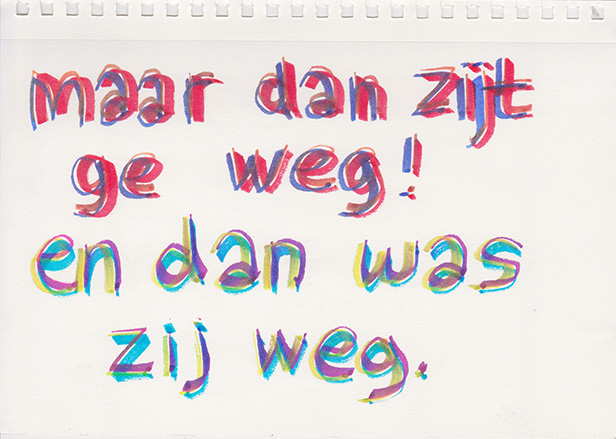 maar dan zijt
ge weg!
en dan was
zij weg.